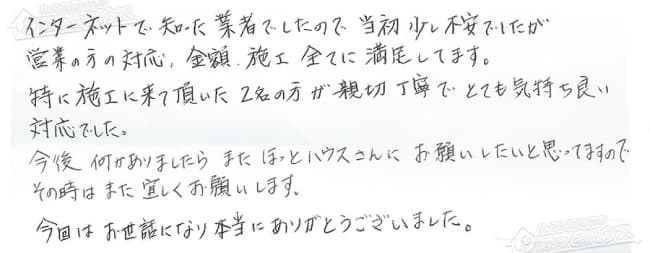 インターネットで知った業者でしたので当初少し不安でしたが
営業の方の対応、金額、施工全てに満足してます。
特に施工に来て頂いた2名の方が親切丁寧でとても気持ち良い
対応でした。
今後何かありましたらまたほっとハウスさんにお願いしたいと思ってますので
その時はまた宜しくお願いします。
今回はお世話になり本当にありがとうございました。